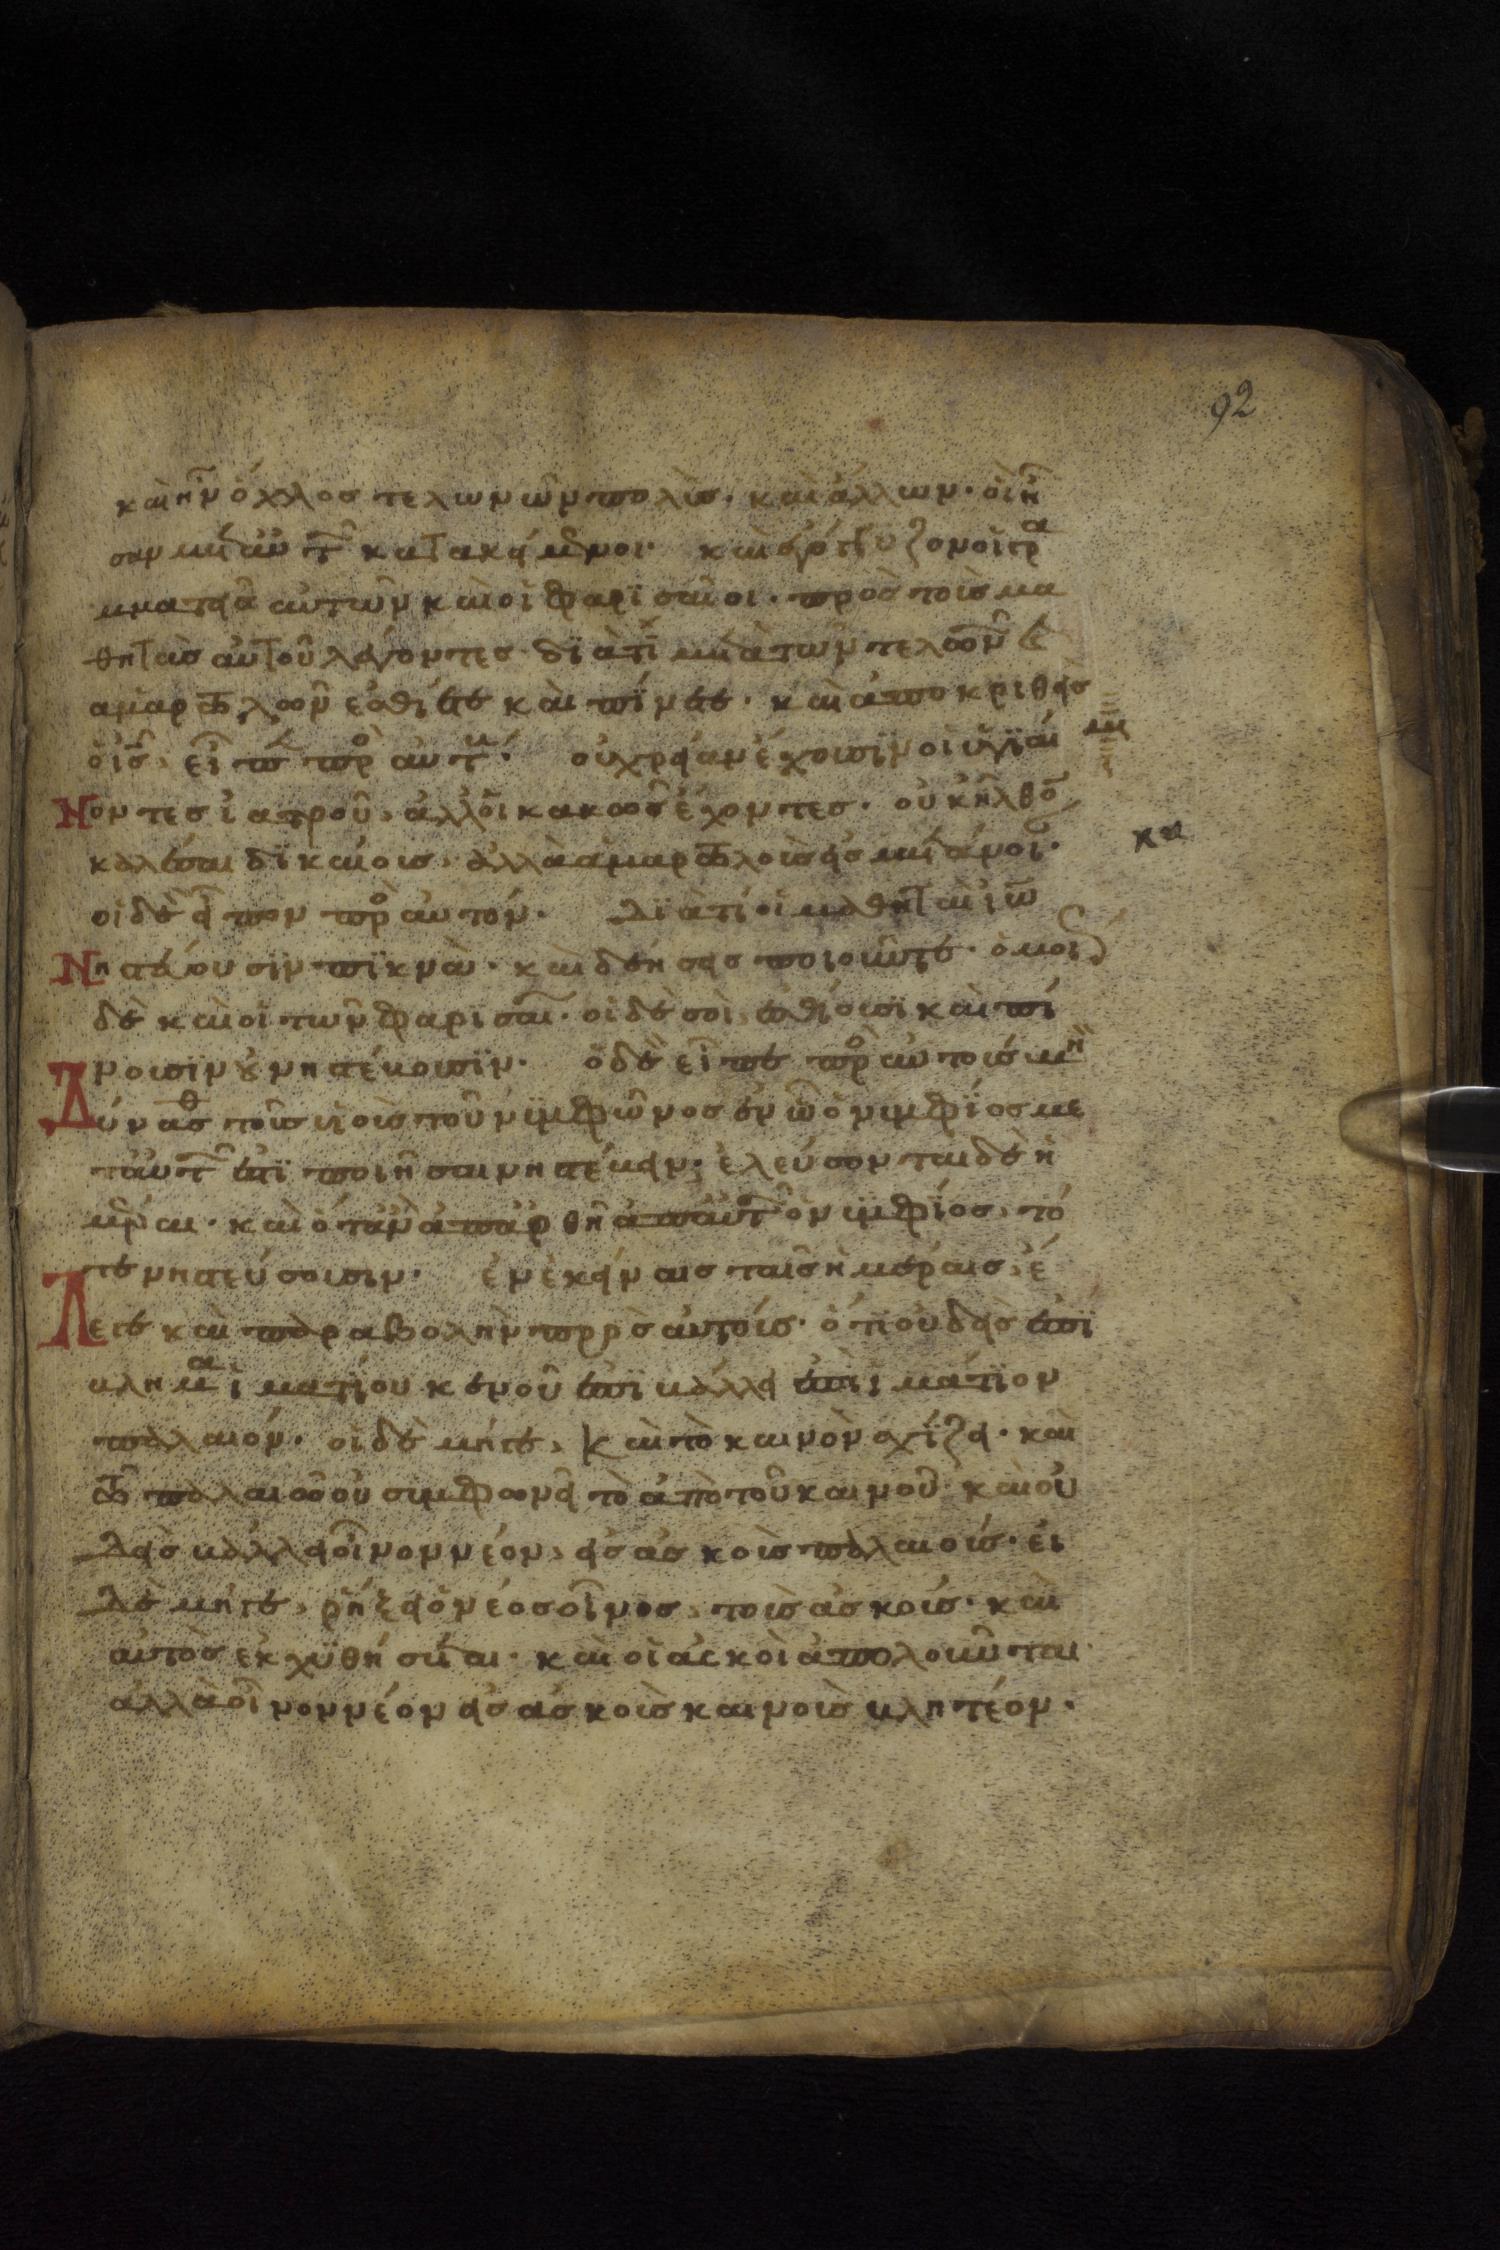 92
καὶ ἦν ὄχλος τελωνῶν πολὺς. καὶ ἄλλων. οἳ ἦ
σαν μετ αὐτ κατακείμενοι. καὶ ἐγόγγυζον οἱ γρα
μματεῖς αὐτῶν καὶ οἱ φαρισαῖοι. πρὸς τοὺς μα
θητὰς αὐτοῦ λέγοντες διατί μετὰ τῶν τελωνῶν καὶ
αμαρτωλῶν εσθίετε καὶ πίνετε. καὶ ἀποκριθεὶς
ὁ ἰς, εἶπε πρὸ αὐτ. οὐ χρείαν έχουσιν οἱ ὑγιαί
Νοντες ἰατροῦ, ἀλλ οἱ κακῶς έχοντες. οὐκ ἦλθον
μη
καλέσαι δικαίοις, ἀλλὰ ἁμαρτωλοὺς εἰς μετάνοι.
κα
οἱ δὲ εἶπον πρὸ αὐτόν. Διατί οἱ μαθηταὶ ἰω
Νηστεύουσϊν πϊκνὰ. καὶ δεήσεις ποιοῦντε. ὁμοί
δὲ καὶ οἱ τῶν φαρισαί. οἱ δέ σοὶ, ἐσθίουσϊ καὶ πί
νουσϊν ȣ νηστέυουσϊν. ὁ δὲ εἶπε πρὸ αὐτοὺς μὴ
Δύνασθ τοὺς υἱοὺς τοῦ νϊμφῶνος ἐν ὧ ὁ νιμφϊος με
τ αὐτ ἐστὶ ποιῆσαι νηστέυειν; ἐλεύσονται δὲ ἡ
μέραι. καὶ ὁτ ἂν ἀπαρθῆ ἀπ αὐτ ὁ νϊμφϊος, τό
τε νηστεύσουσιν. ἐν ἐκείναις ταῖς ἡμέραις, έ
Λεγε καὶ παραβολὴν πρρὸς αὐτούς. ὁτϊ οὐδεὶς ἐπϊ
βλημα ϊματϊου κενοῦ ἐπϊβάλλει ἐπὶ ϊμάτϊον
παλαιόν. οἰ δὲ μήγε, Καὶ τὸ καινὸν σχϊζει. καὶ
τῶ παλαιῶ οὐ σιμφωνεῖ τὸ ἀπὸ τοῦ καινοῦ. καὶ οὐ
δεὶς βάλλει οἶνον νέον, εἰς ἀσκοὺς παλαιούς. ἐι
δὲ μήγε, ρήξει ὁ νέος οἶνος, τοὺς ἀσκούς. καὶ
αὐτὸς ἐκχϋθήσεται. καὶ οἱ ἀσκοὶ ἀπολοῦνται.
ἀλλὰ οἶνον νέον εἰς ἀσκοὺς καινοὺς βλητέον.